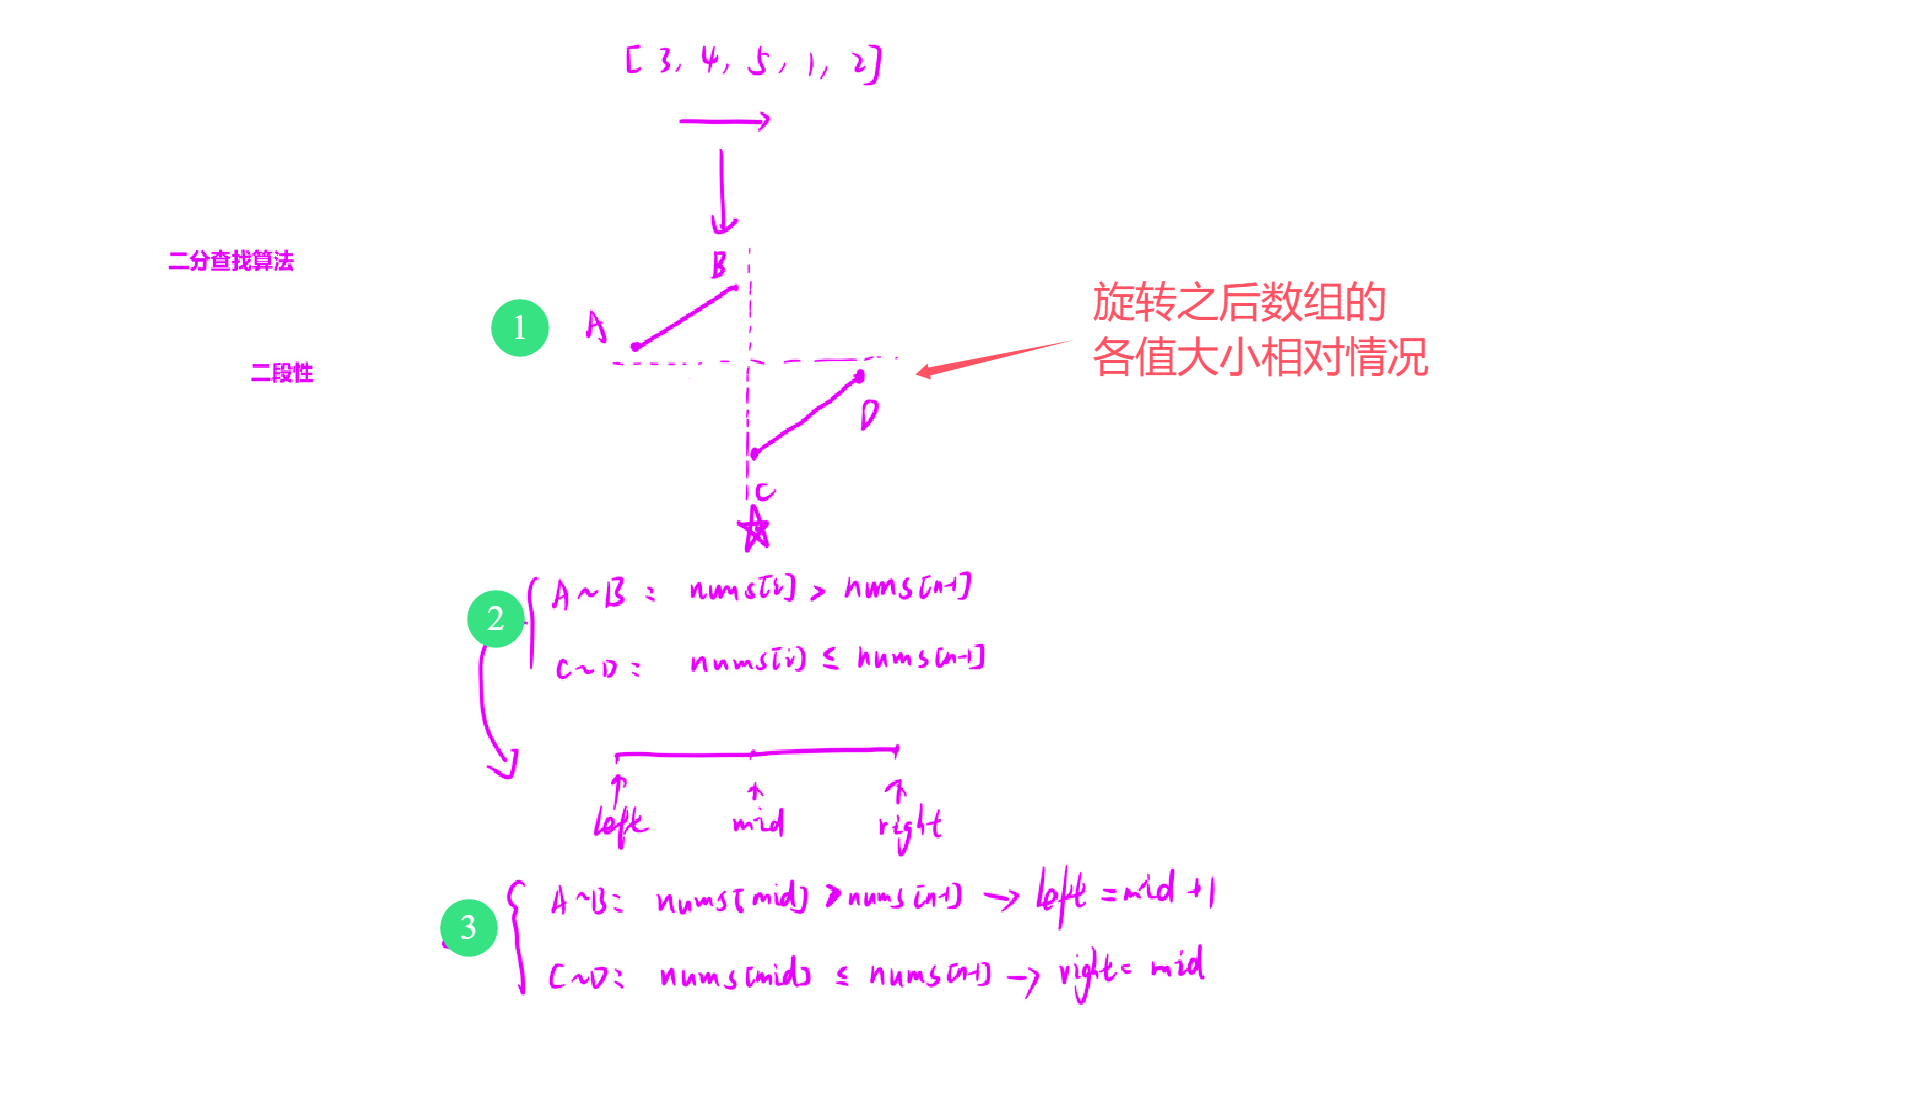 [3, 4, 5, 1, 2]
二分查找算法
B
1
A
旋转之后数组的
各值大小相对情况
二段性
D
C
2
A~B: nums[i] > nums[n-1]
C~D: nums[i] ≤ nums[n-1]
left mid right
3
A~B: nums[mid] > nums[n-1] → left = mid + 1
C~D: nums[mid] ≤ nums[n-1] → right = mid